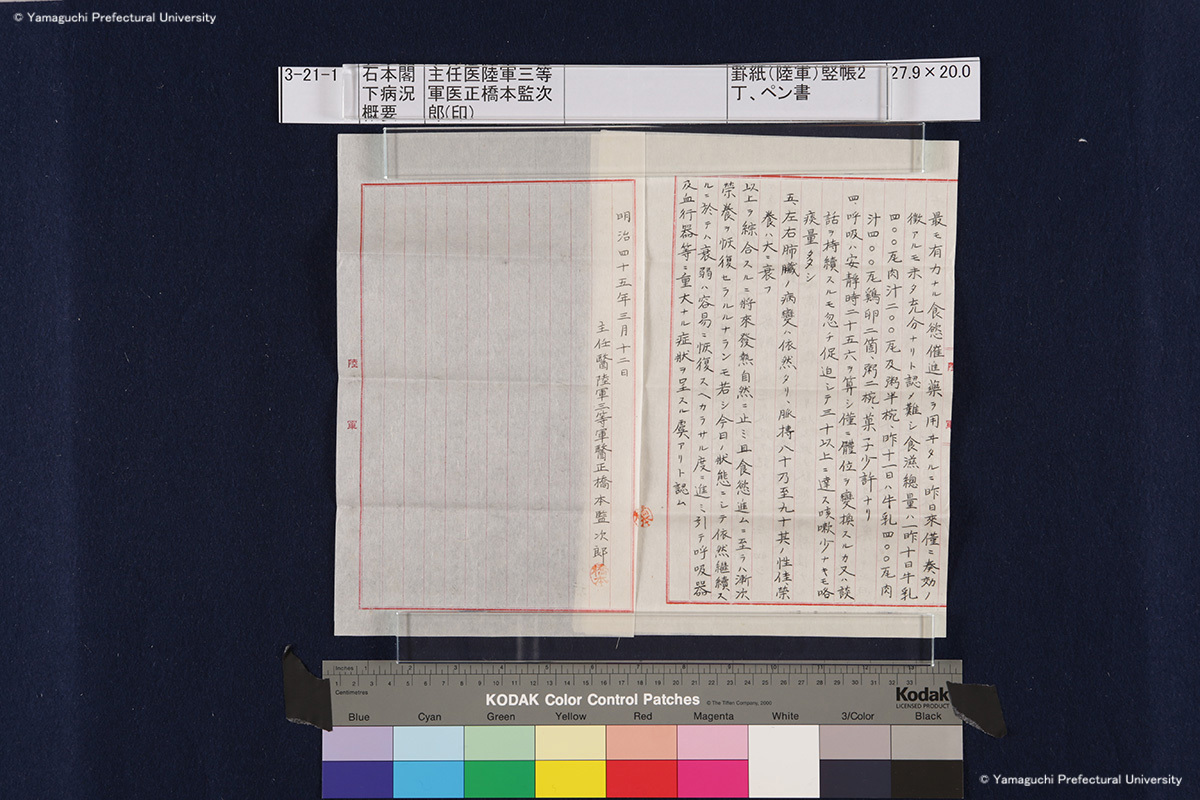 © Yamaguchi Prefectural University
3-21-1
石本閣
下病況
概要
主任医陸軍三等
軍医正橋本監次
郎(印)
罫紙(陸軍)竪帳2
丁、ペン書
27.9×20.0
最モ有力ナル食慾催進藥ヲ用ヰタルニ昨日來僅ニ奏効ノ
徴アルモ未タ充分ナリト認メ難シ食滋總量ハ一昨十日牛乳
四〇〇瓦肉汁二〇〇瓦及粥半椀、昨十一日ハ牛乳四〇〇瓦肉
汁四〇〇瓦鶏卵二箇、粥二椀、菓子少許ナリ
四、呼吸ハ安靜時二十五六ヲ算シ僅ニ體位ヲ變換スルカ又ハ談
話ヲ持續スルモ忽チ促迫シテ三十以上ニ達ス咳嗽少ナキモ喀
痰量タシ
五、左右肺臟ノ病變ハ依然タリ、脈搏八十乃至九十其ノ性佳、榮
養ハ大ニ衰フ
以上ヲ綜合スルニ將來發熱自然ニ止ミ且食慾進ムニ至ラハ漸次
榮養ヲ恢復セラルルナランモ若シ今日ノ狀態ニシテ依然繼續ス
ルニ於テハ衰弱ハ容易ニ恢復スヘカラサル度ニ進ミ引テ呼吸器
及血行器等ニ重大ナル症狀ヲ呈スル虞アリト認ム
明治四十五年三月十二日
主任醫陸軍三等軍醫正橋本監次郎
陸軍
Inches
Centimetres
KODAK Color Control Patches
© The Tiffen Company, 2000
Kodak
LICENSED PRODUCT
Blue Cyan Green Yellow Red Magenta White 3/Color Black
© Yamaguchi Prefectural University